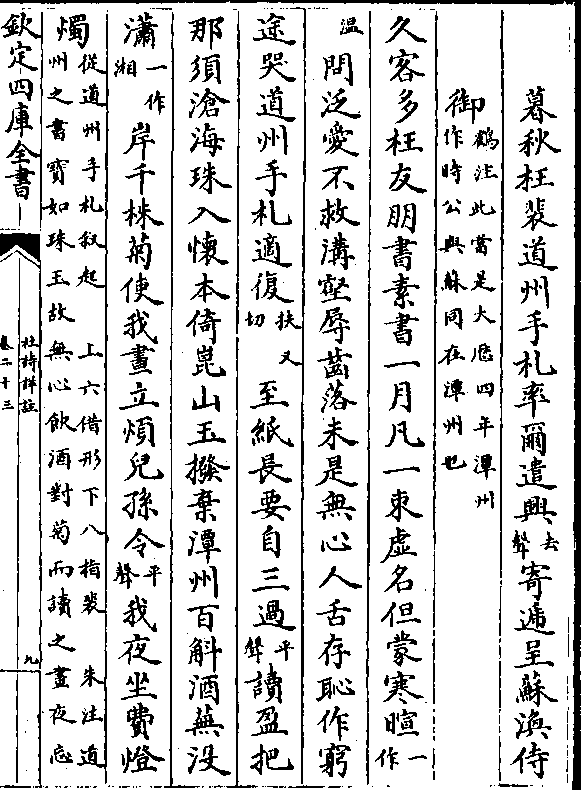 暮秋枉裴道州手札率爾遣興去聲寄遞呈蘇渙侍
御鶴注此當是大厯四年潭州
作時公與蘇同在潭州也
久客多枉友朋書素書一月凡一束虛名但蒙寒暄一作
温問泛愛不救溝壑辱齒落未是無心人舌存恥作窮
途哭道州手札適復扶又
切至紙長要自三過平聲讀盈把
那須滄海珠入懷本倚崑山玉撥棄潭州百斛酒蕪没
瀟一作
湘岸千株菊使我晝立煩兒孫令平聲我夜坐費燈
燭從道州手札叙起 上六借形下八指裴 朱注道
州之書寳如珠玉故無心飲酒對菊而讀之晝夜忘
欽定四庫全書
杜詩詳註
卷二十三
九